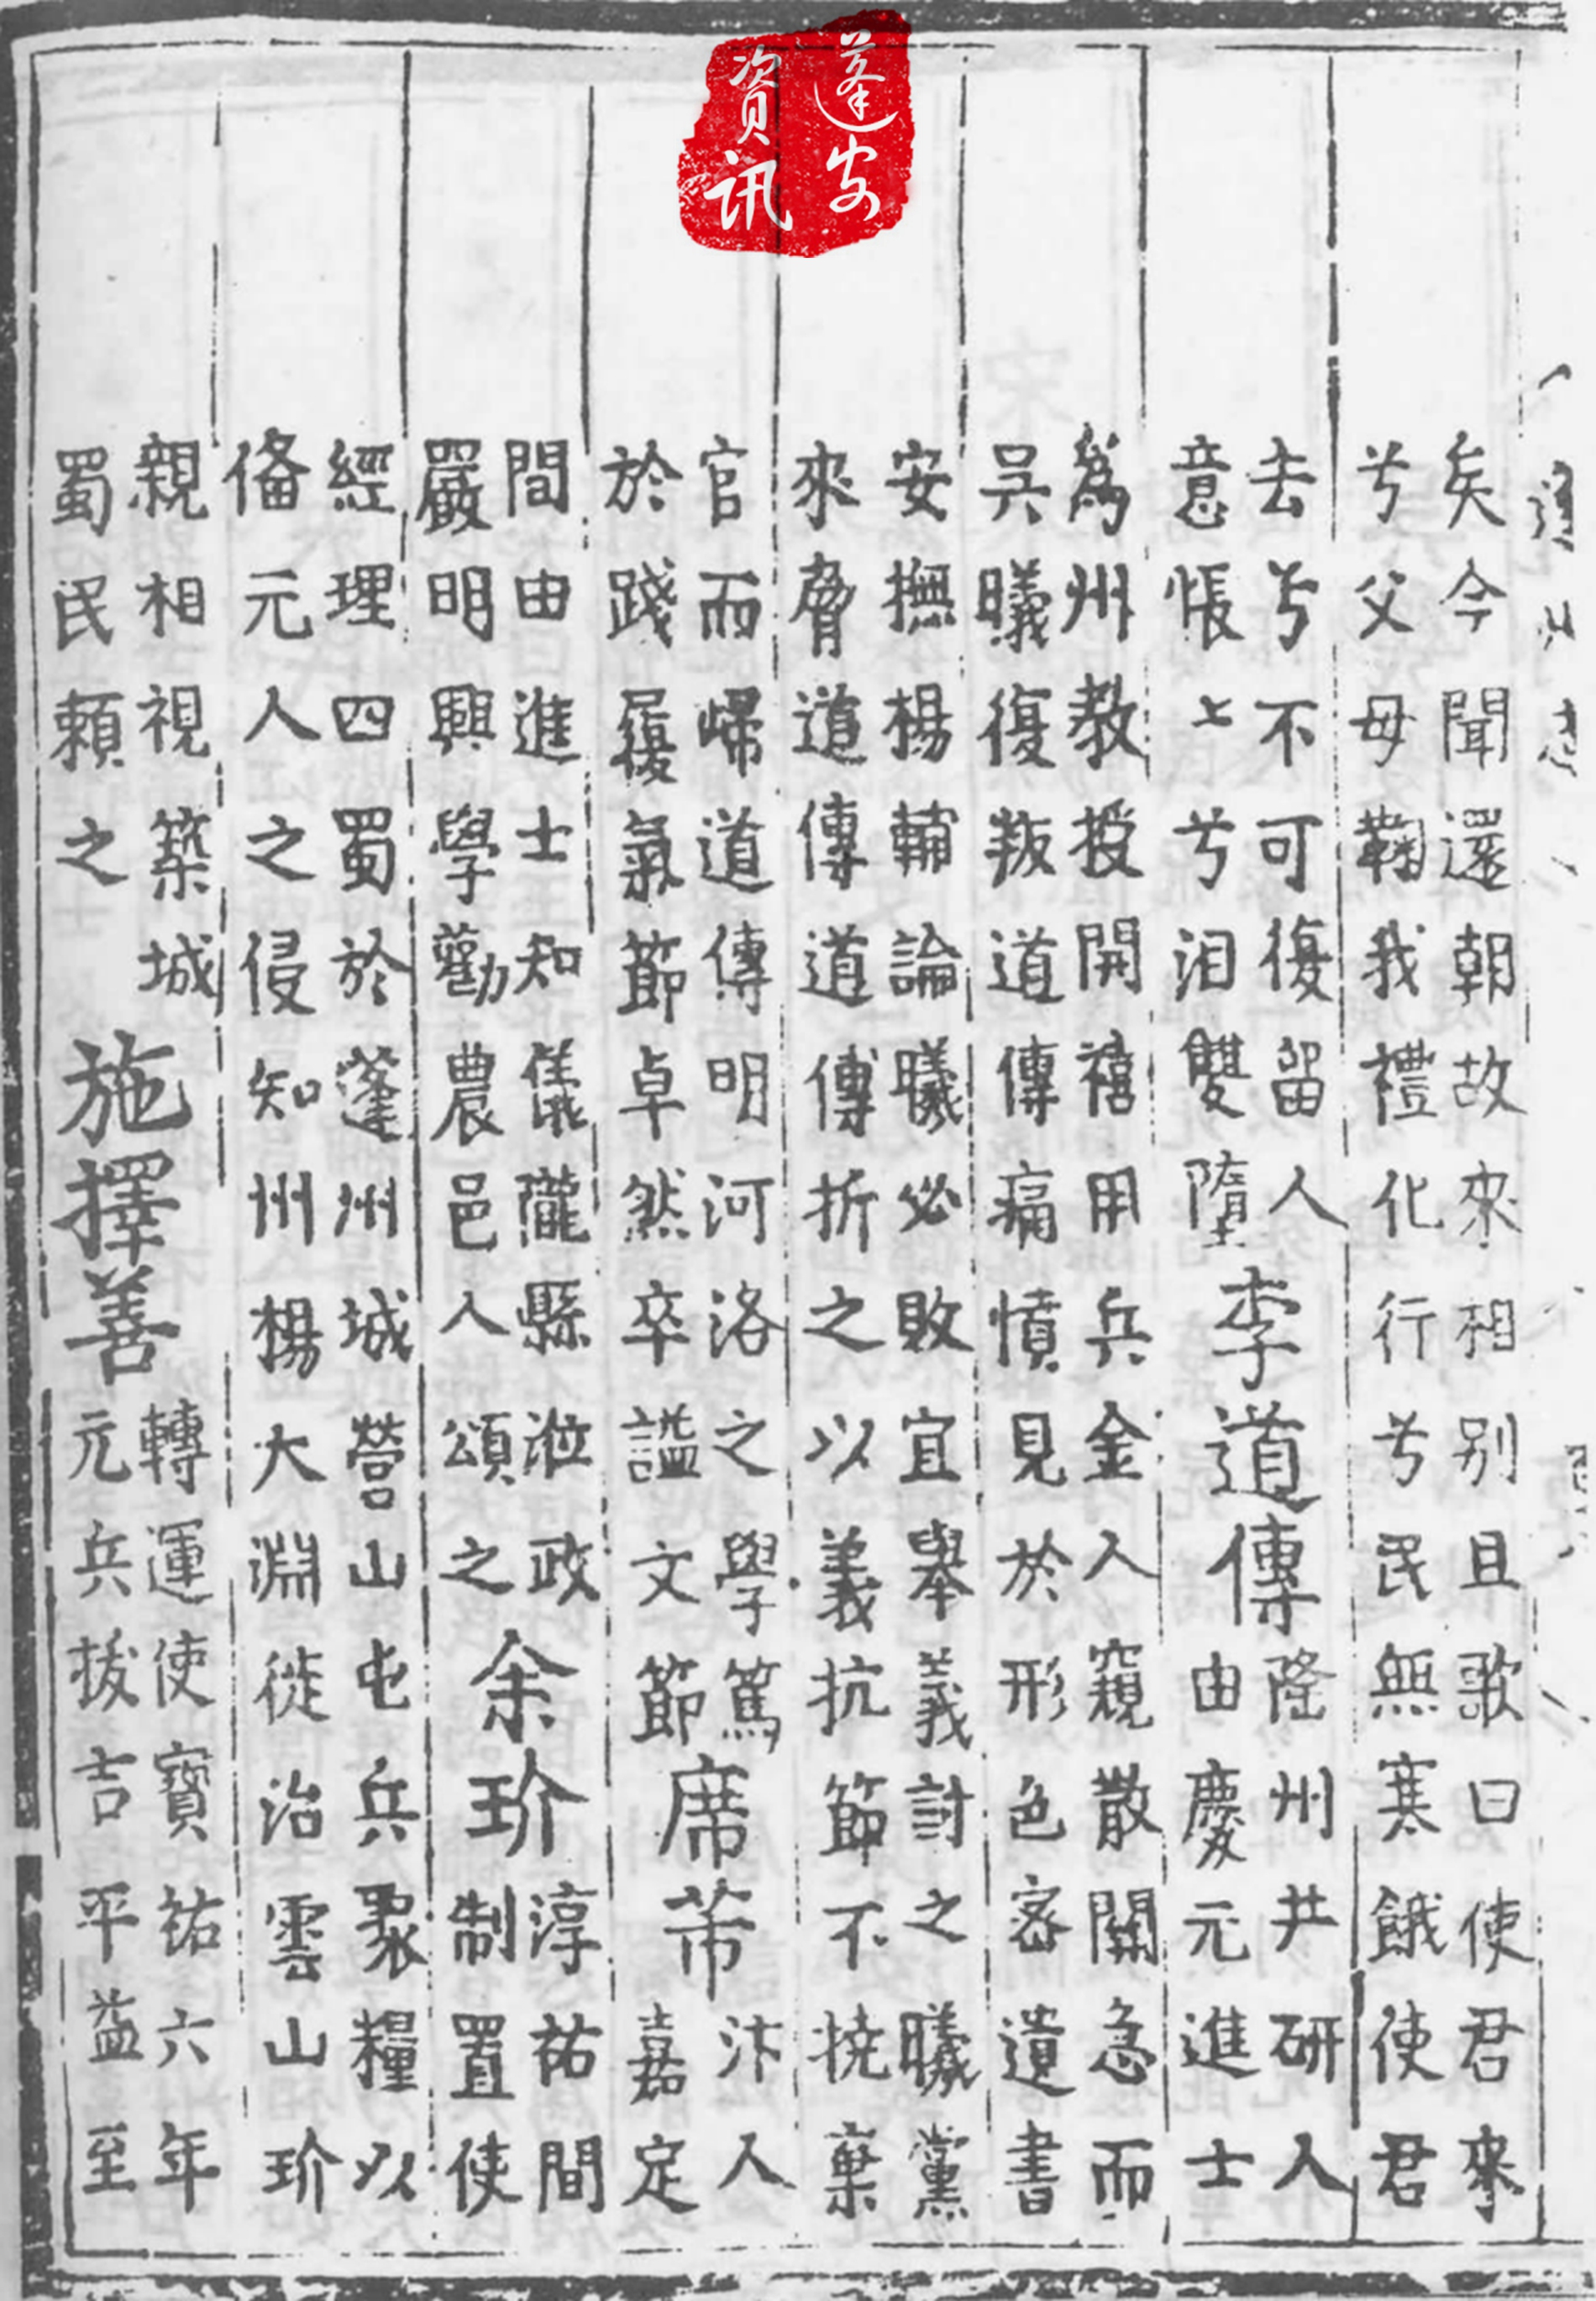 蓬安
資訊
矣今聞還朝故來相別且歌曰使君來
兮父母鞠我禮化行兮民無寒餓使君
去兮不可復留人
意悵〻兮泪雙墮
李道傳
隆州井研人
由慶元進士
為州教授開禧用兵金人窺散關急而
吳曦復叛道傳痛憤見於形色密遺書
安撫楊輔論曦必敗宜舉義討之曦黨
來脅道傳道傳折之以義抗節不撓棄
官而歸道傳明河洛之學篤
於踐履氣節卓然卒謚文節
席帀
汴人
嘉定
間由進士知儀隴縣涖政
嚴明興學勸農邑人頌之
余玠
淳祐間
制置使
經理四蜀於蓬州城營山屯兵聚糧以
俻元人之侵知州楊大淵徙治雲山玠
親相視築城
蜀民頼之
施擇善
轉運使寳祐六年
元兵拔吉平益至